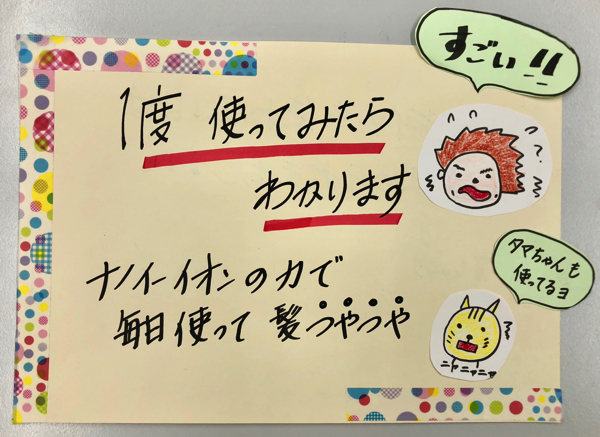 すごい!!
1度 使ってみたら
わかります
タマちゃんも
使ってるヨ
ナノイーイオンの力で
毎日使って 髪つやつや
ニャニャニャ